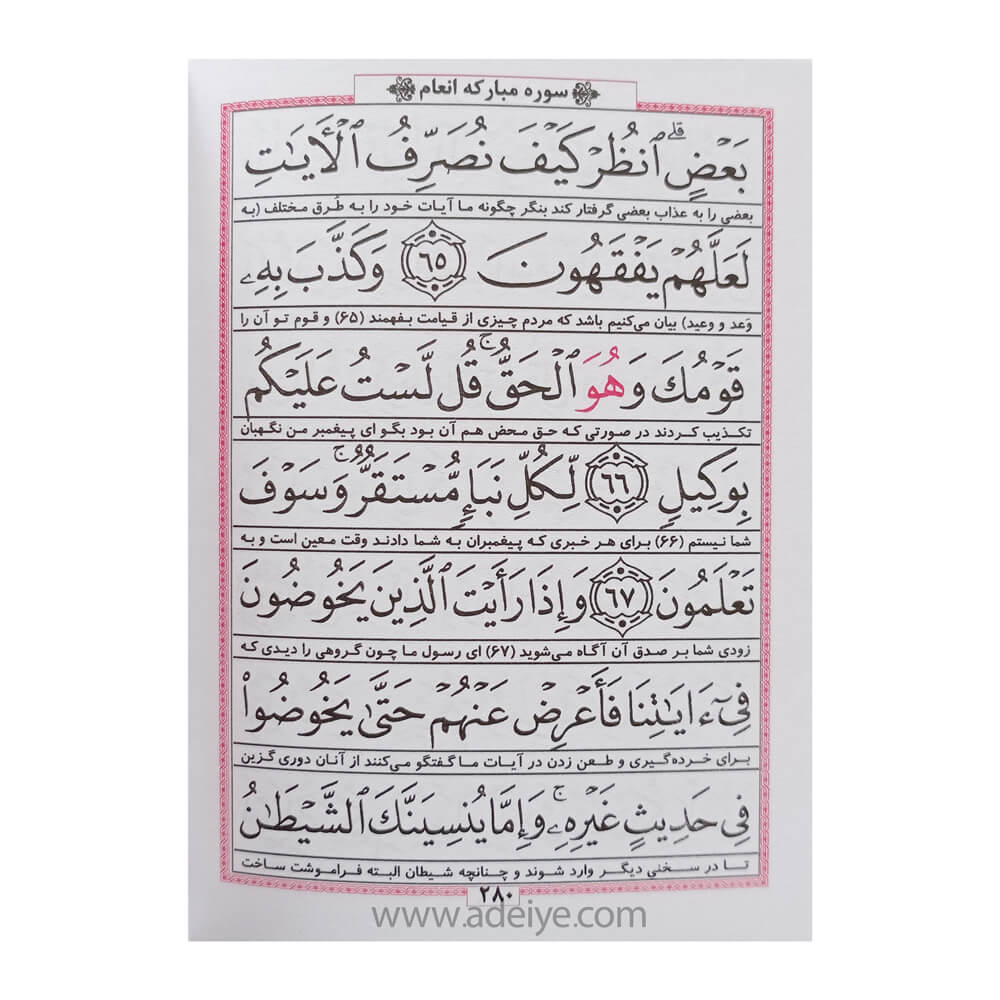 سوره مبارکه انعام
بَعْضٍ ۗ ٱنظُرْ كَيْفَ نُصَرِّفُ ٱلْأَيَٰتِ
بعضی را به عذاب بعضی گرفتار کند بنگر چگونه ما آیات خود را به طُرق مختلف (به
لَعَلَّهُمْ يَفْقَهُونَ ۝٦٥ وَكَذَّبَ بِهِۦ
وَعد و وعید) بیان می‌کنیم باشد که مردم چیزی از قیامت بفهمند (۶۵) و قوم تو آن را
قَوْمُكَ وَهُوَ ٱلْحَقُّ ۚ قُل لَّسْتُ عَلَيْكُم
تکذیب کردند در صورتی که حق محض هم آن بود بگو ای پیغمبر من نگهبان
بِوَكِيلٍ ۝٦٦ لِّكُلِّ نَبَإٍ مُّسْتَقَرٌّ ۚ وَسَوْفَ
شما نیستم (۶۶) برای هر خبری که پیغمبران به شما دادند وقت معین است و به
تَعْلَمُونَ ۝٦٧ وَإِذَا رَأَيْتَ ٱلَّذِينَ يَخُوضُونَ
زودی شما بر صدق آن آگاه می‌شوید (۶۷) ای رسول ما چون گروهی را دیدی که
فِىٓ ءَايَٰتِنَا فَأَعْرِضْ عَنْهُمْ حَتَّىٰ يَخُوضُوا۟
برای خرده‌گیری و طعن زدن در آیات ما گفتگو می‌کنند از آنان دوری گزین
فِى حَدِيثٍ غَيْرِهِۦ ۚ وَإِمَّا يُنسِيَنَّكَ ٱلشَّيْطَٰنُ
تا در سخنی دیگر وارد شوند و چنانچه شیطان البته فراموشت ساخت
۲۸۰
www.adeiye.com